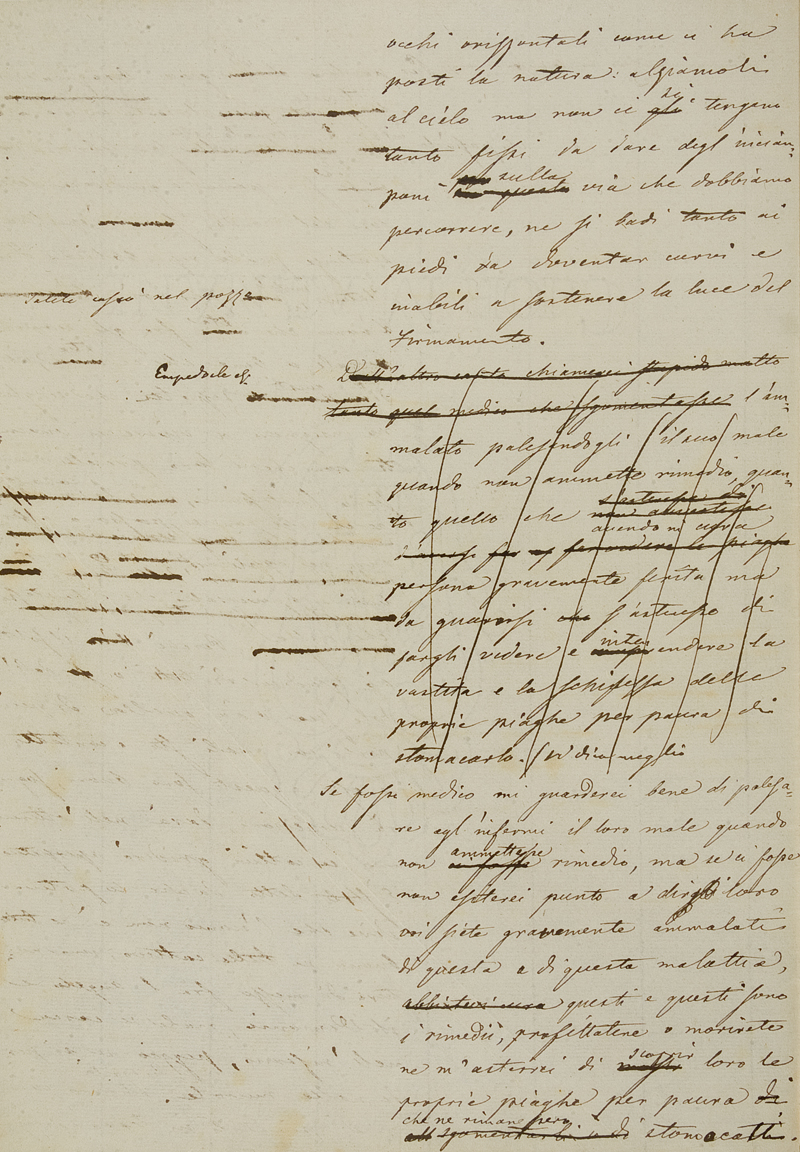 occhi orizzontali come ci ha
posti la natura: alziamoli
al cielo ma non ci gli si tengano
tanto fissi da dare degl'inciam=
pani sulla in questa via che dobbiamo
percorrere, ne si badi tanto ai
piedi da diventar curvi e
inabili a sostenere la luce del
Firmamento.
Talete cascò nel pozzo
Empedocle &c.
Dall'altro canto chiamerei stupido matto
tanto quel medico che sgomentasse l'am=
malato palesandogli il suo male
quando non ammette rimedio, quan=
to quello che
avendo in cura
persona gravemente ferita ma
da guarirsi s'astenesse di
fargli vedere e intendere la
vastità e la schifezza delle
proprie piaghe per paura di
stomacarlo. (o dirò meglio
Se fossi medico mi guarderei bene di palesa=
re agl'infermi il loro male quando
non ammettesse rimedio, ma se ci fosse
non esiterei punto a dirgli loro
voi siete gravemente ammalati
di questa e di questa malattia,
questi e questi sono
i rimedii, profittatene o morirete
ne m'asterrei di scoprir loro le
proprie piaghe per paura di
che ne riman
sgomentarli e di stomacatti.